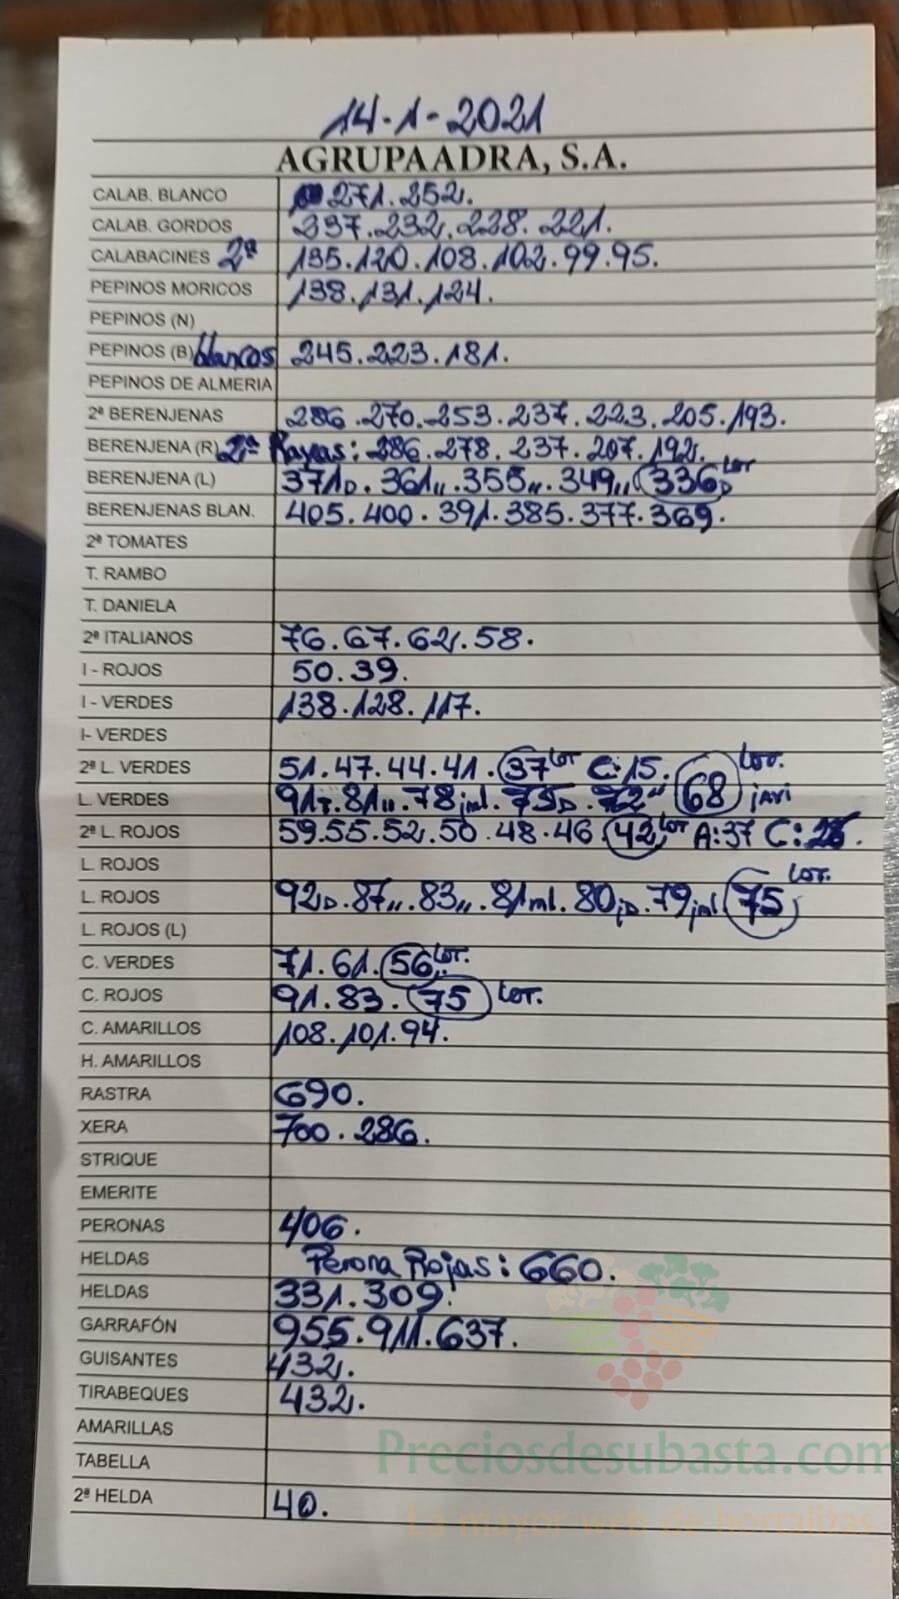 14-1-2021
AGRUPAADRA, S.A.
CALAB. BLANCO 271.252.
CALAB. GORDOS 237.232.228.221.
CALABACINES 2ª 135.120.108.102.99.95.
PEPINOS MORICOS 138.131.124.
PEPINOS (N)
PEPINOS (B) blancos 245.223.181.
PEPINOS DE ALMERIA
2ª BERENJENAS 286.270.253.237.223.205.193.
BERENJENA (R) 2ª Rayas: 286.278.237.207.192.
BERENJENA (L) 371D.361,,.355,,.349,,.336D Lot
BERENJENAS BLAN. 405.400.391.385.377.369.
2ª TOMATES
T. RAMBO
T. DANIELA
2ª ITALIANOS 76.67.62.58.
I - ROJOS 50.39.
I - VERDES 138.128.117.
I- VERDES
2ª L. VERDES 51.47.44.41.37 Lot C:15.
L. VERDES 91T.81,,.78jml.75D.72" 68 Lot. javi
2ª L. ROJOS 59.55.52.50.48.46.42 Lot A:37 C:
L. ROJOS
L. ROJOS 92D.87,,.83,,.81ml.80jD.79jml 75 Lot.
L. ROJOS (L)
C. VERDES 71.61.56 Lot.
C. ROJOS 91.83.75 Lot.
C. AMARILLOS 108.101.94.
H. AMARILLOS
RASTRA 690.
XERA 700.286.
STRIQUE
EMERITE
PERONAS 406.
HELDAS Perona Rojas: 660.
HELDAS 331.309.
GARRAFÓN 955.911.637.
GUISANTES 432.
TIRABEQUES 432.
AMARILLAS
Preciosdesubasta.com
TABELLA
2ª HELDA 40.
La mayor web de hortalizas